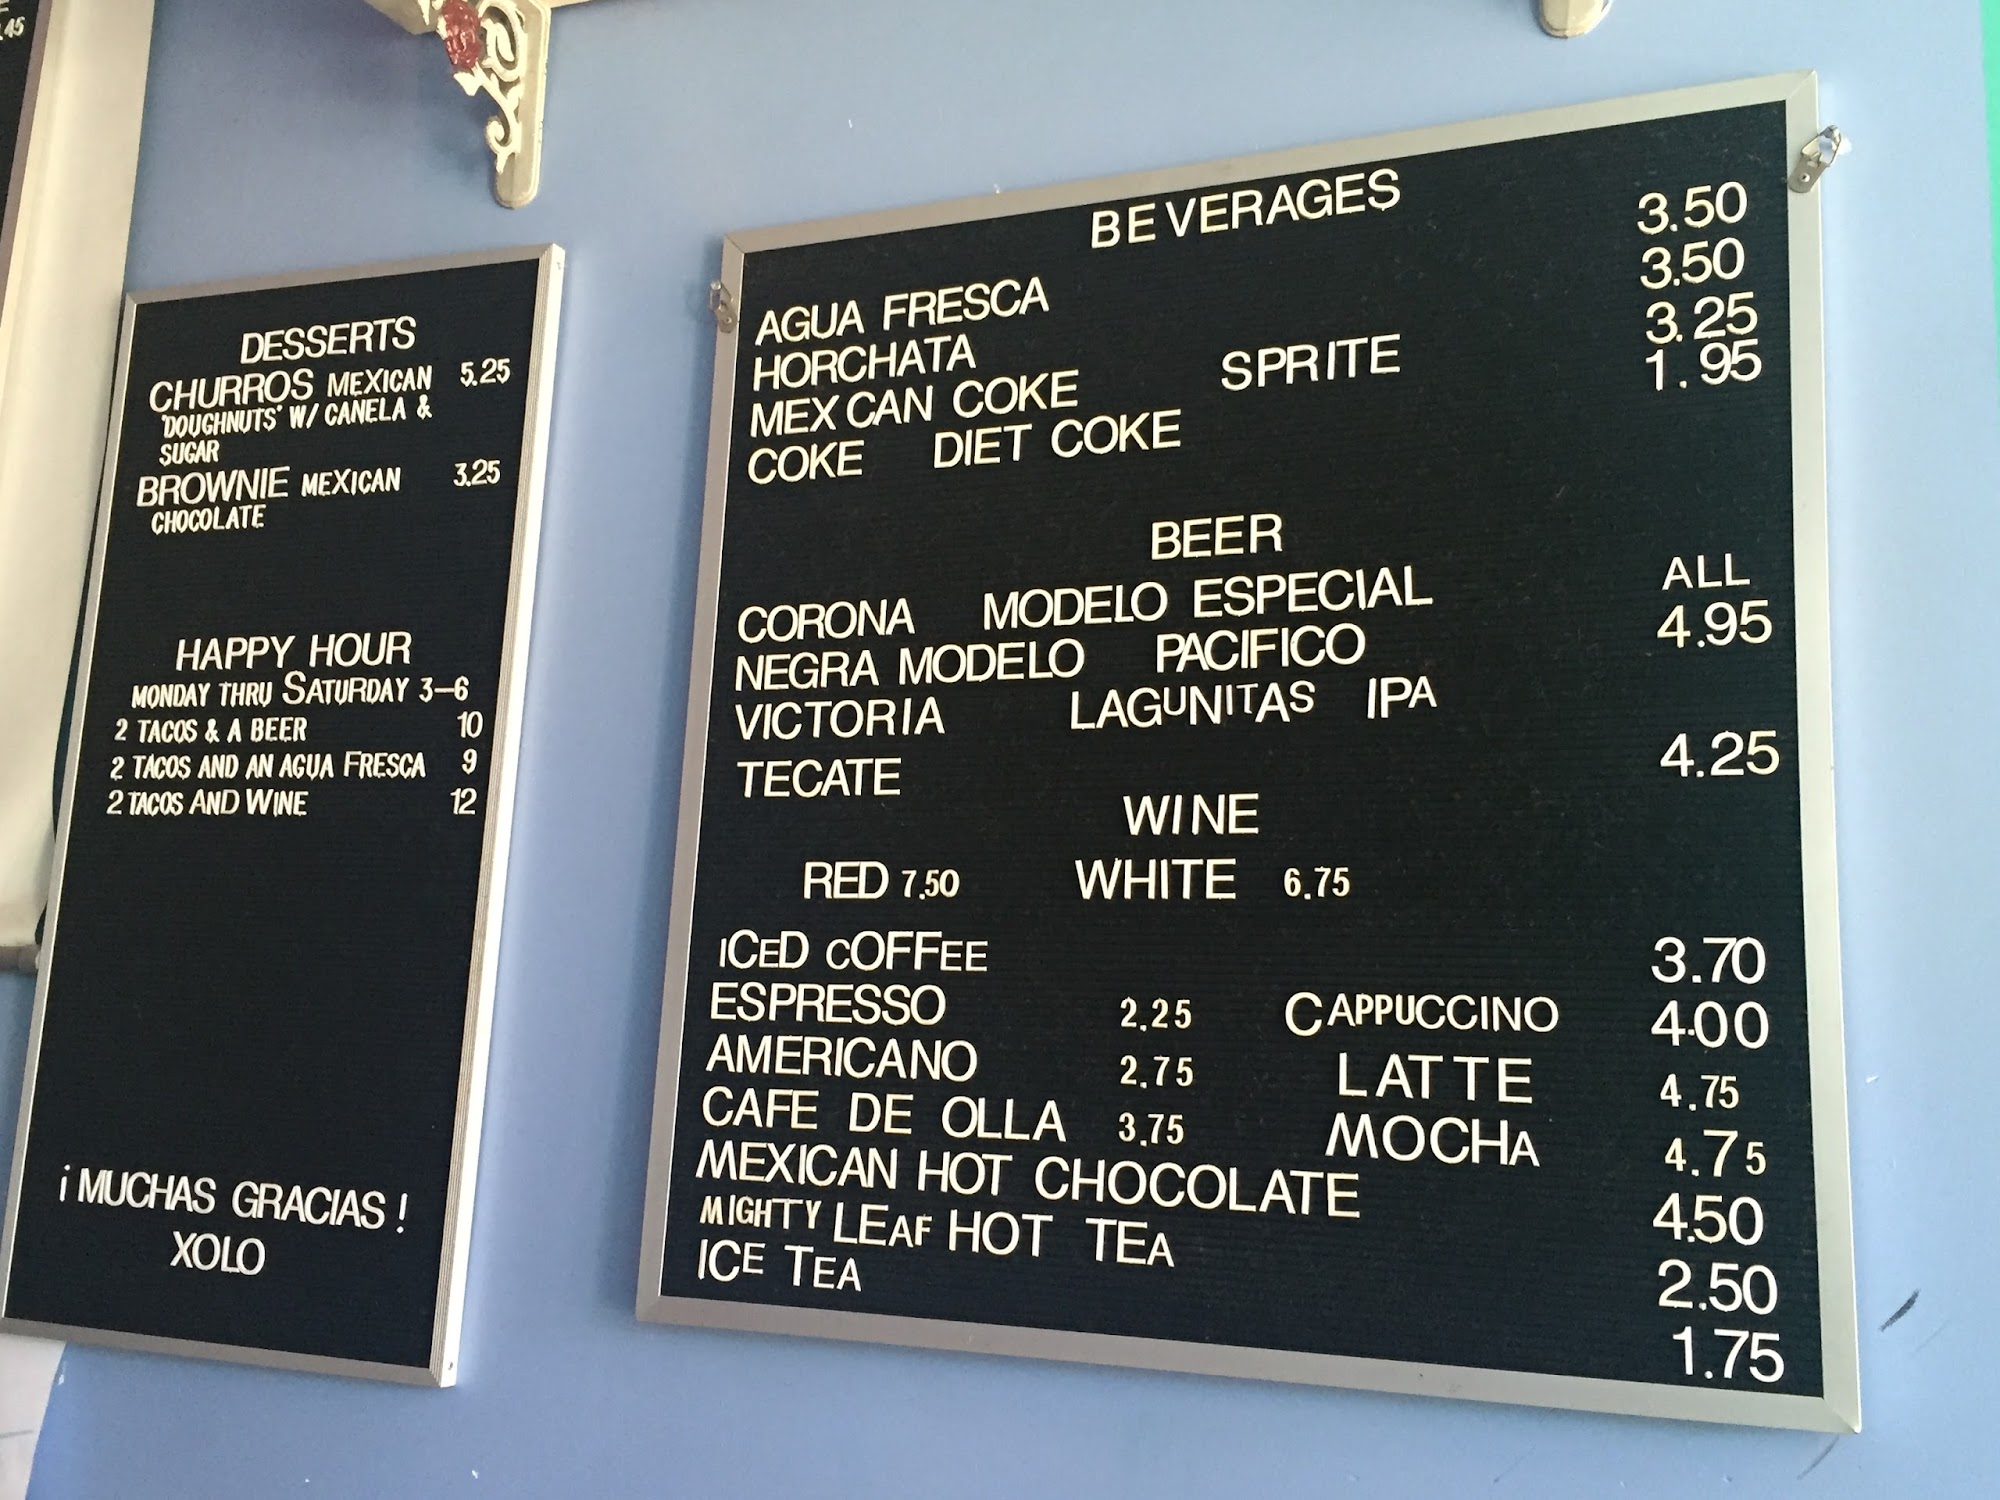 .45
DESSERTS
CHURROS MEXICAN 5.25
"DOUGHNUTS" W/ CANELA &
SUGAR
BROWNIE MEXICAN 3.25
CHOCOLATE
HAPPY HOUR
MONDAY THRU SATURDAY 3-6
2 TACOS & A BEER 10
2 TACOS AND AN AGUA FRESCA 9
2 TACOS AND WINE 12
¡MUCHAS GRACIAS!
XOLO
BEVERAGES
AGUA FRESCA 3.50
HORCHATA 3.50
MEX CAN COKE SPRITE 3.25
COKE DIET COKE 1.95
BEER
CORONA MODELO ESPECIAL ALL
NEGRA MODELO PACIFICO 4.95
VICTORIA LAGUNITAS IPA
TECATE 4.25
WINE
RED 7.50 WHITE 6.75
ICED COFFEE 3.70
ESPRESSO 2.25 CAPPUCCINO 4.00
AMERICANO 2.75 LATTE 4.75
CAFE DE OLLA 3.75 MOCHA 4.75
MEXICAN HOT CHOCOLATE 4.50
MIGHTY LEAF HOT TEA 2.50
ICE TEA 1.75